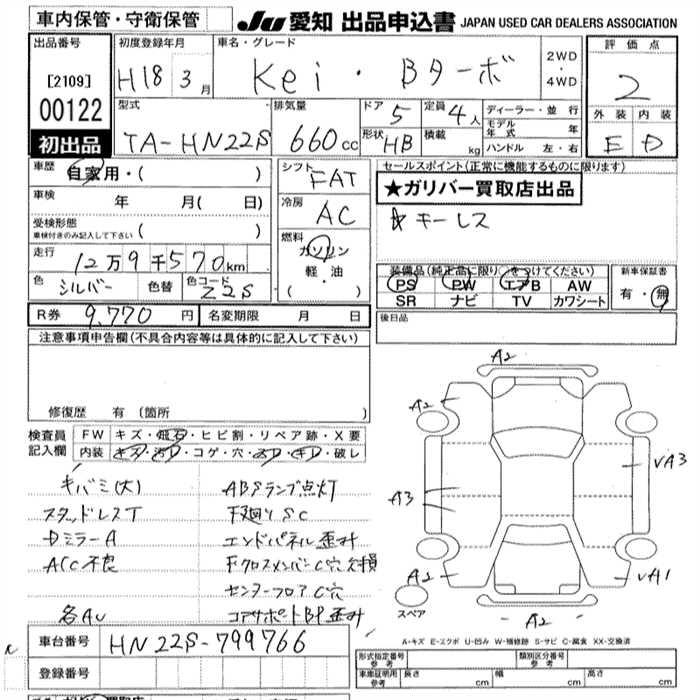 車内保管・守衛保管 JU 愛知 出品申込書 JAPAN USED CAR DEALERS ASSOCIATION
出品番号 初度登録年月 車名・グレード 評価点
[2109] H18 3月 Kei・Bターボ 2WD・4WD 2
00122 型式 排気量 ドア 5 定員 4人 ディーラー・並行 外装 内装
初出品 TA-HN22S 660cc 形状 HB 積載 kg モデル年式 年 E D
ハンドル 左・右
車歴 自家用・( ) シフト FAT セールスポイント(正常に機能するものに限ります)
車検 年 月( 日) 冷房 AC ★ガリバー買取店出品
受検形態 ( ) ☆キーレス
車検付きのみ記入して下さい
走行 12万9千570km 燃料 ガソリン・軽油・( )
色 シルバー 色替 色コード Z2S
装備品(純正品に限り○をつけてください) 新車保証書
PS PW エアB AW 有・無
SR ナビ TV カワシート
R券 9,770円 名変期限 月 日 後日品
注意事項申告欄(不具合内容等は具体的に記入して下さい)
修復歴 有(箇所 )
検査員記入欄 FW キズ・飛石・ヒビ割・リペア跡・X要
内装 キズ・汚レ・コゲ・穴・スレ・キレ・破レ
キバミ(大) ABSランプ点灯
スタッドレスT 下廻りSC
Dミラー A エンドパネル歪ミ
A/C不良 FクロスメンバーC穴欠損
センターフロアC穴
各AU コアサポートBP歪ミ
A2
A2
VA3
A3
A2
VA1
スペア
A2
A-キズ E-エクボ U-凹み W-補修跡 S-サビ C-腐食 XX-交換済
車台番号 HN22S-799766
登録番号
形式指定番号 参考 類別区分番号 参考
車庫証明用 参考 長さ cm 幅 cm 高さ cm